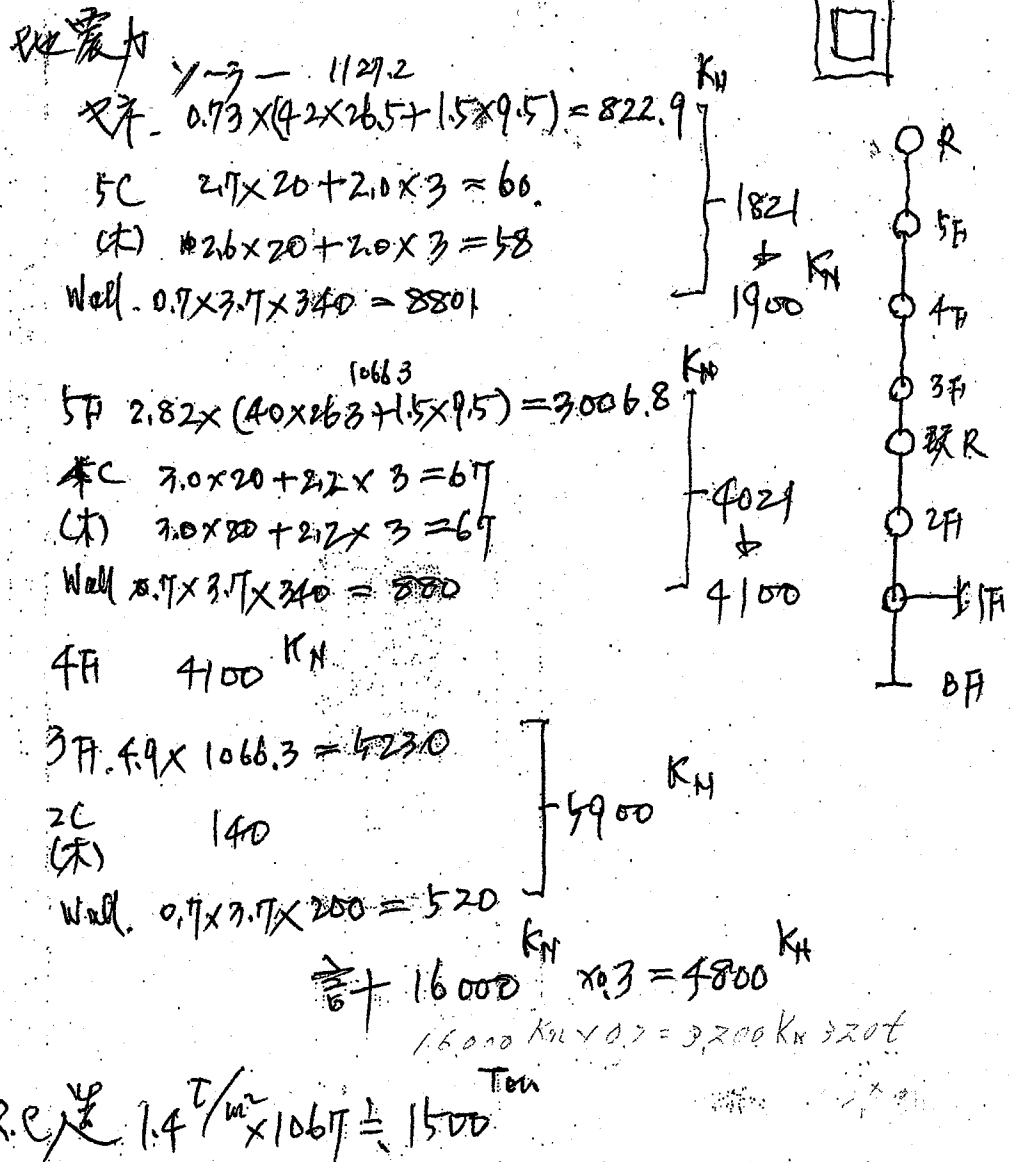 地震力
ソーラー 1127.2
ヤネ 0.73×(42×26.5+1.5×9.5)=822.9 KN
5C 2.7×20+2.0×3=60.
(木) 2.6×20+2.0×3=58
Wall. 0.7×3.7×340=8801
1821
↓
1900 KN
1066.3
5F 2.82×(40×26.3+1.5×9.5)=3006.8 KN
4C 3.0×20+2.2×3=67
(木) 3.0×20+2.2×3=67
Wall 0.7×3.7×340=880
4021
↓
4100
4F 4100 KN
3F. 4.9×1066.3=5230
2C
(木) 140
Wall. 0.7×3.7×200=520
5900 KN
計 16000 KN ×0.3=4800 KN
16.000 KN×0.2=3,200KN 320t
R.C造 1.4 T/m²×1067≒1500 Ton
R
5F
4F
3F
R
2F
1F
BF